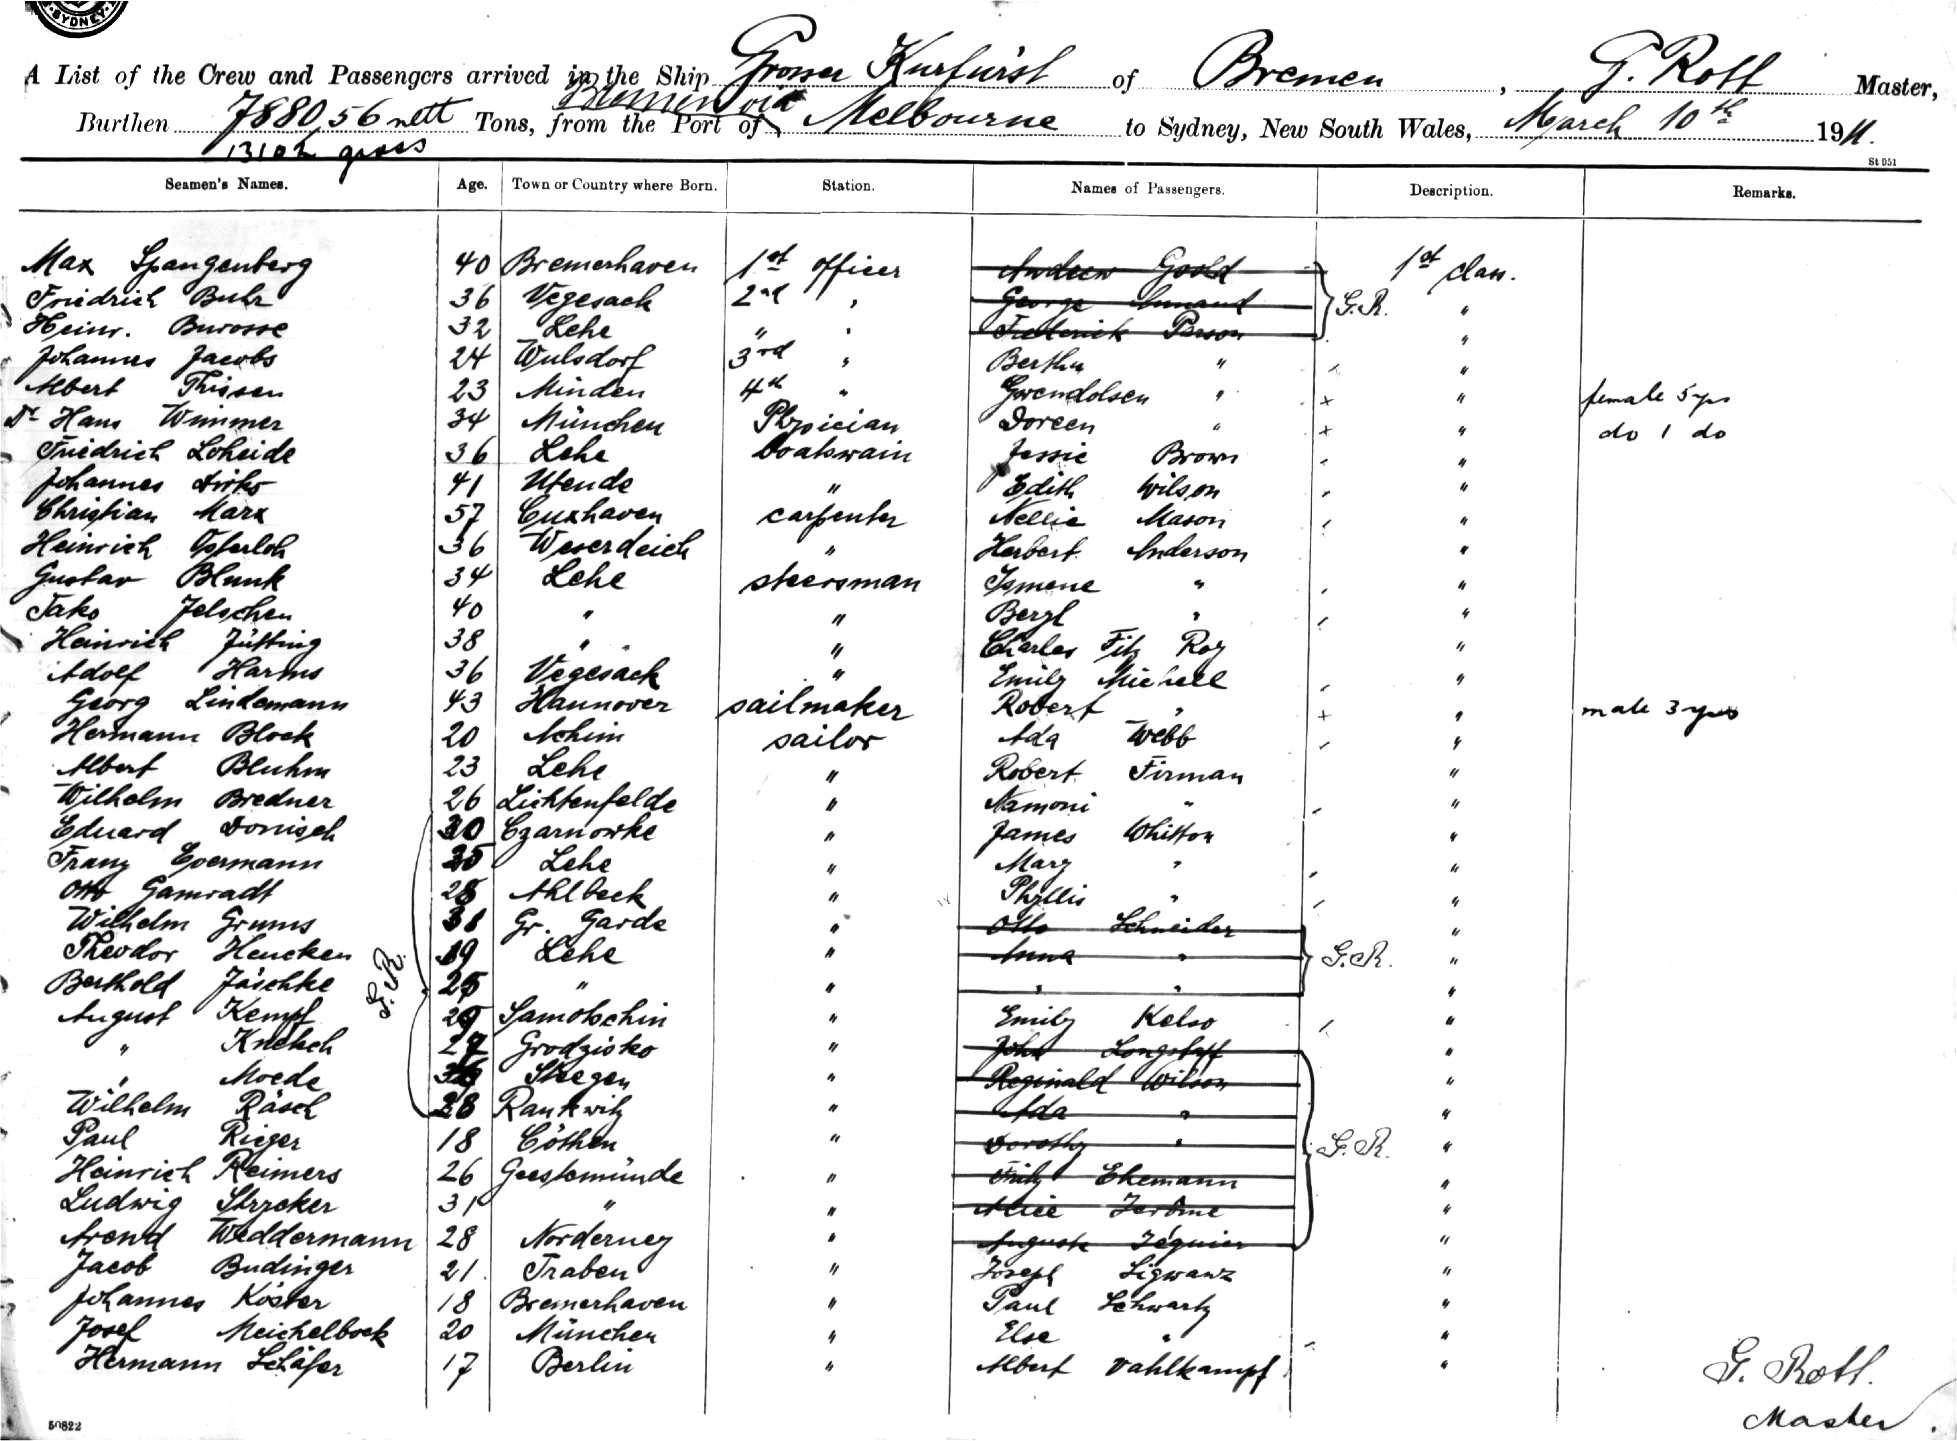 SYDNEY
A List of the Crew and Passengers arrived in the Ship Grosser Kurfürst of Bremen, G. Rott Master,
Bremen via
Burthen 7880,56 nett Tons, from the Port of Melbourne to Sydney, New South Wales, March 10th 1911.
13102 gross
St D51
Seamen's Names. Age. Town or Country where Born. Station. Names of Passengers. Description. Remarks.
Max Spangenberg 40 Bremerhaven 1st officer Andrew Goold 1st class.
Friedrich Buhr 36 Vegesack 2nd " George Armand G.R. "
Heinr. Burosse 32 Lehe " " Frederick Person "
Johannes Jacobs 24 Wulsdorf 3rd " Bertha " "
Albert Thissen 23 Minden 4th " Gwendolsen " x " female 5 yrs
Dr Hans Wimmer 34 München Physician Doreen " x " do 1 do
Friedrich Loheide 36 Lehe boatswain Jessie Brown "
Johannes Dirks 41 Utende " Edith Wilson "
Christian Marx 57 Cuxhaven carpenter Nellie Mason "
Heinrich Osterloh 36 Weserdeich " Herbert Anderson "
Gustav Blunk 34 Lehe steersman Ismene " "
Tako Jelschen 40 " " Beryl " "
Heinrich Jütting 38 " " Charles Fitz Roy "
Adolf Harms 36 Vegesack " Emily Michell "
Georg Lindemann 43 Hannover sailmaker Robert " x " male 3 yrs
Hermann Block 20 Achim sailor Ada Webb "
Albert Bluhm 23 Lehe " Robert Firman "
Wilhelm Bredner 26 Lichtenfelde " Namoni " "
Eduard Donisch 30 Czarnowke " James Whitton "
Franz Evermann 35 Lehe " Mary " "
Otto Gamradt 28 Ahlbeck " Phyllis " "
Wilhelm Grums 31 Gr. Garde " Otto Schneider "
Theodor Heucken 19 Lehe " Anna " G.R. "
Berthold Jäschke 25 " " " " "
G.R.
August Kempf 29 Samotschin " Emily Kelso "
" Knetsch 27 Grodzisko " John Longstaff "
" Moede Steegen " Reginald Wilson "
Wilhelm Räsch 28 Rankwitz " Ada " "
Paul Rieger 18 Cöthen " Dorothy " G.R. "
Heinrich Reimers 26 Geestemünde " Fritz Ekemann "
Ludwig Strycker 31 " " Alice Jerôme "
Arend Weddermann 28 Norderney " Auguste Jéquier "
Jacob Budinger 21 Traben " Joseph Sigwanz "
Johannes Köster 18 Bremerhaven " Paul Schwartz "
Josef Meichelbock 20 München " Else " "
Hermann Schäfer 17 Berlin " Albert Vahlkampf "
G. Rott.
Master.
50822